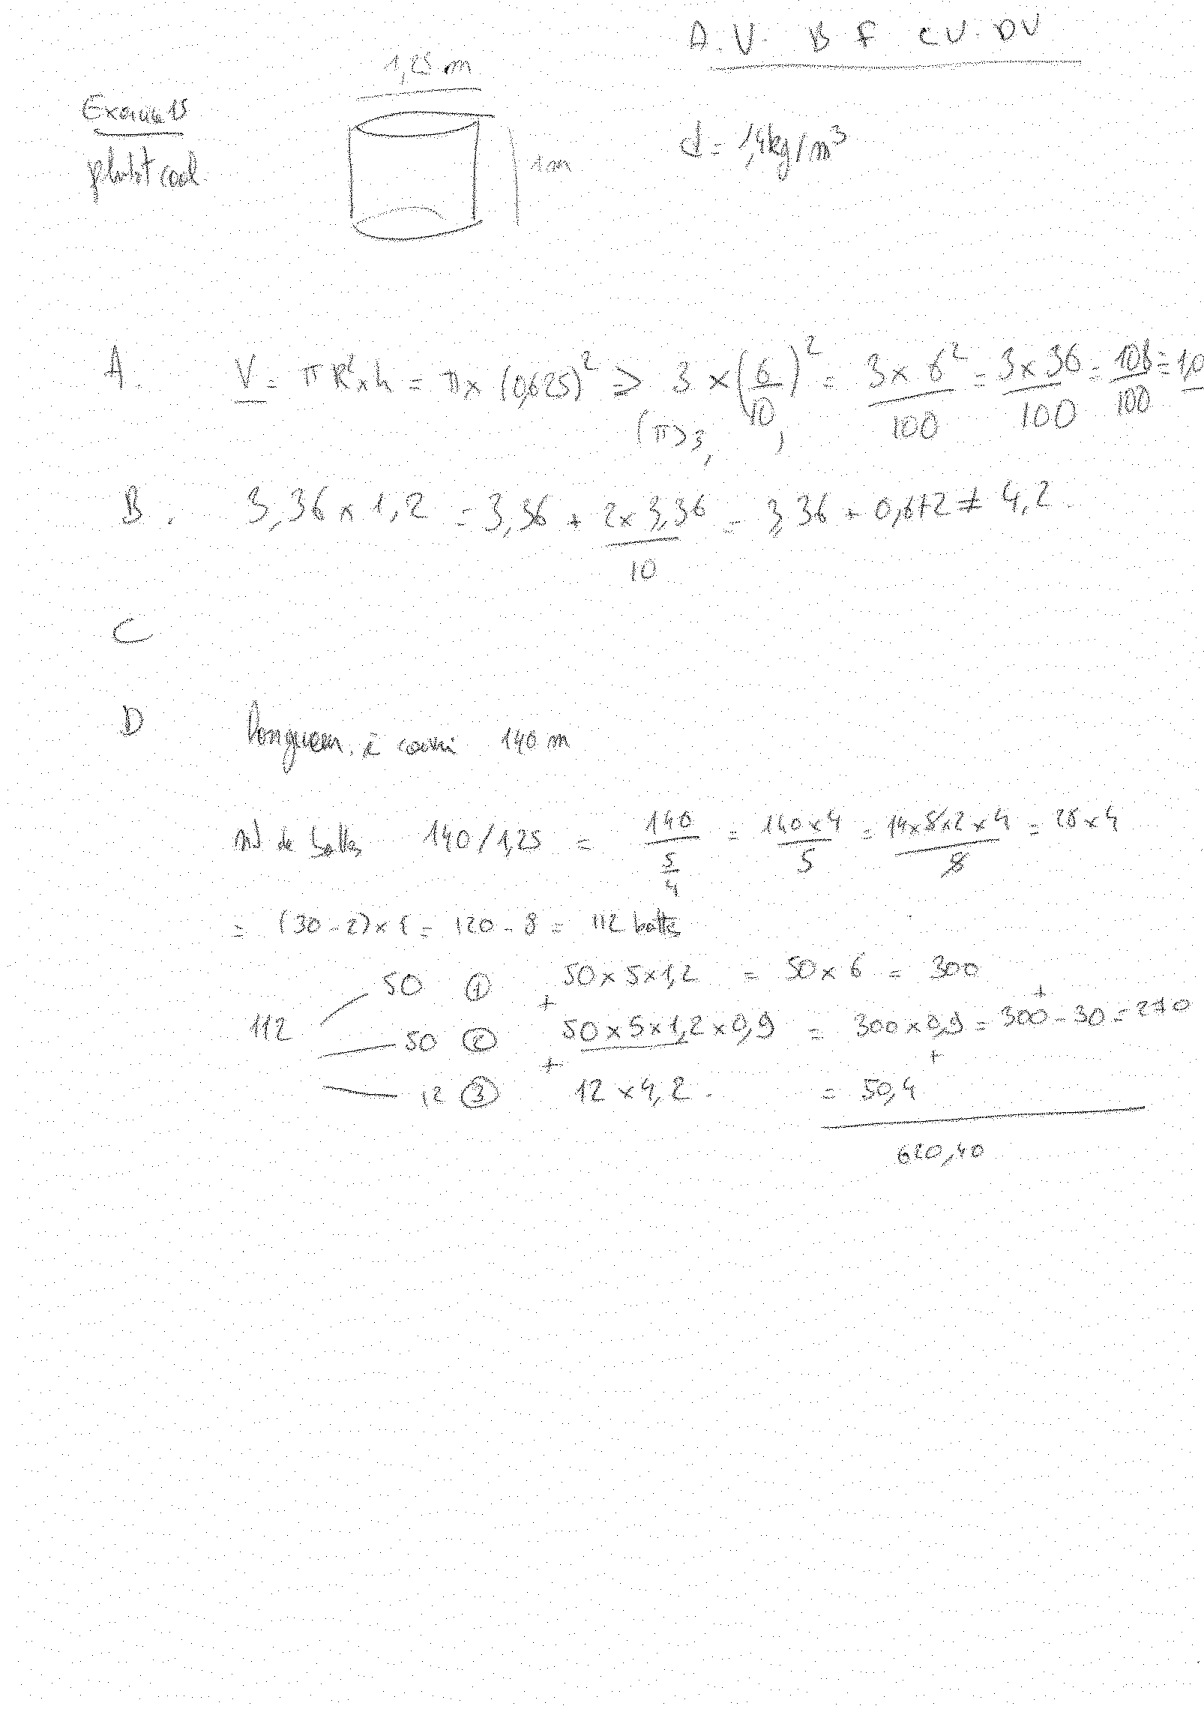 A. V. B F C V. D V
1,25 m
Exercice 15
plutôt cool
1m
d = 1,4kg/m³
A. V = π R² x h = π x (0,625)² ≥ 3 x (6/10)² = 3 x 6²/100 = 3 x 36/100 = 108/100 = 1,0
(π > 3,
B. 3,36 x 1,2 = 3,36 + 2 x 3,36/10 = 3,36 + 0,672 ≠ 4,2
C
D Longueur à couvrir 140 m
nb de bottes 140/1,25 = 140/(5/4) = 140 x 4/5 = 14 x 5 x 2 x 4/5 = 28 x 4
= (30 - 2) x 4 = 120 - 8 = 112 bottes
50 ① 50 x 5 x 1,2 = 50 x 6 = 300
112 50 ② + 50 x 5 x 1,2 x 0,9 = 300 x 0,9 = 300 - 30 = 270 +
12 ③ + 12 x 4,2. = 50,4 +
620,40